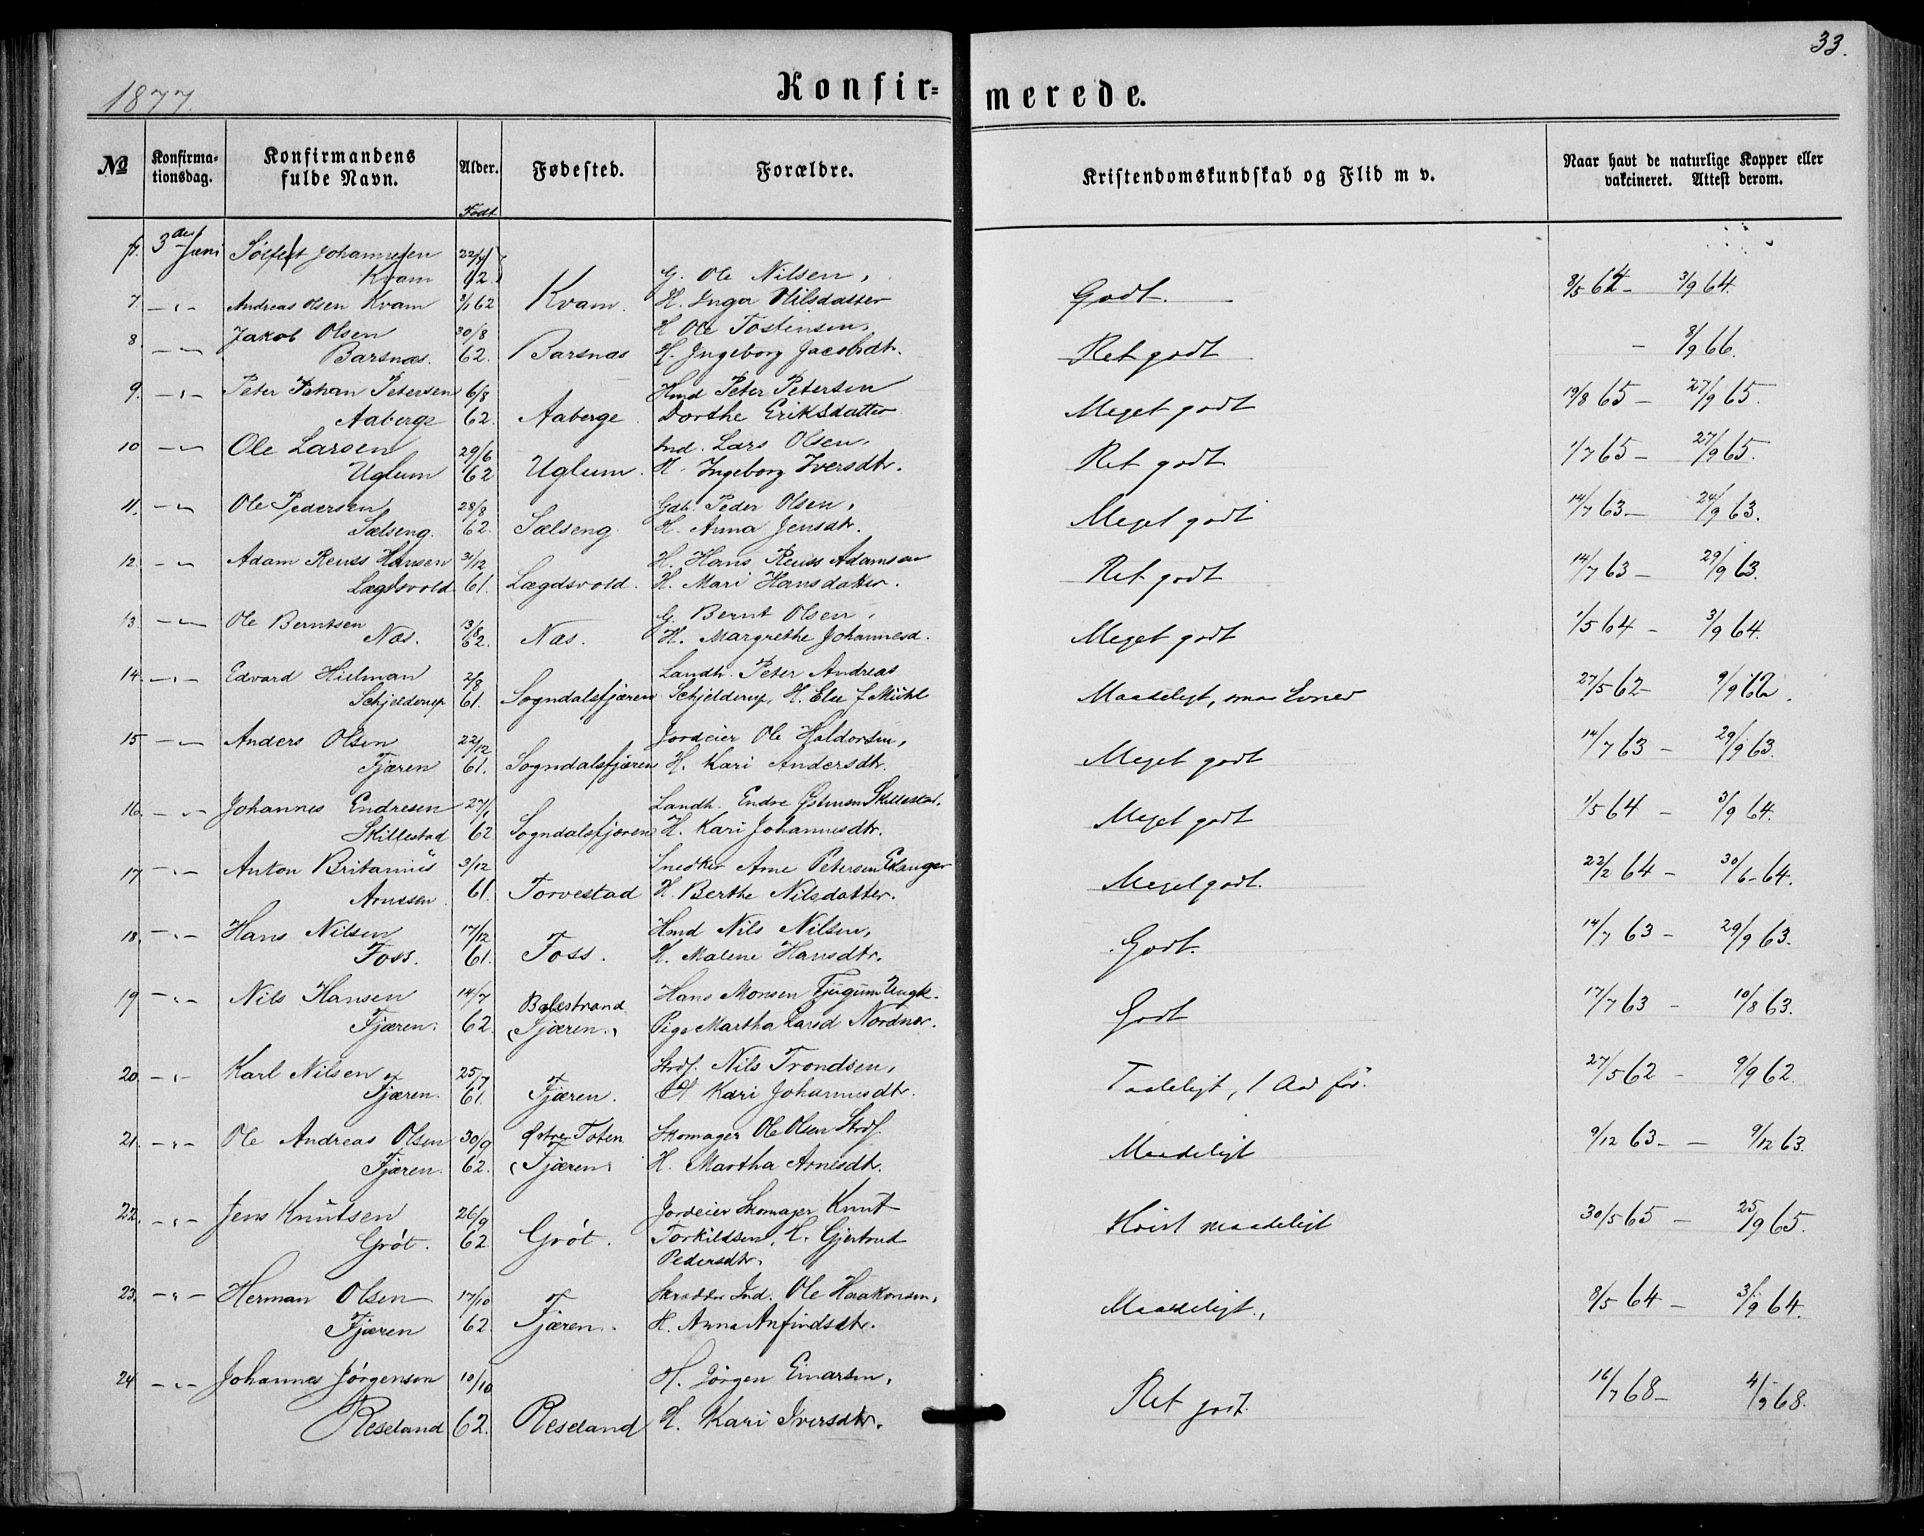 33.
1877.
Konfir-
merede.
№
Konfirma-
tionsdag.
Konfirmandens
fulde Navn.
Alder.
Født
Fødested.
Forældre.
Kristendomskundskab og Flid m v.
Naar havt de naturlige Kopper eller
vakcineret. Attest derom.
3 die Juni Johannesen 22/4
Kvam 62. G. Ole Nilsen,
7. Andreas Olsen Kvam 62 Kvam. H. Inger Nilsdatter Godt. 8/5 64 - 3/9 64.
8. Jakob Olsen 30/8 H Ole Tostensen,
Barsnæs. 62. Barsnæs H. Ingeborg Jacobsdt. Ret godt - 8/9 66.
9. Peter Johan Petersen 6/8 Hmd Peter Petersen
Aaberge 62. Aaberge Dorthe Eriksdatter Meget godt 19/8 65 - 27/9 65.
10 Ole Larsen 29/6 Ind. Lars Olsen,
Uglum 62 Uglum. H. Ingeborg Iversdtr. Ret godt 1/7 65 - 27/9 65.
11. Ole Pedersen 28/8 Gdb. Peder Olsen,
Sælseng. 62. Sælseng H. Anna Jensdtr. Meget godt 14/7 63 - 24/9 63.
12. Adam Reuss Hansen 31/12 H. Hans Reuss Adamsen
Lægdsvold 61. Lægdsvold. H. Mari Hansdatter. Ret godt 14/7 63 - 29/9 63.
13. Ole Berntsen 13/8 G Bernt Olsen,
Næs. 62. Næs. H. Margrethe Johannesd. Meget godt 1/5 64 - 3/9 64.
14. Edvard Hielman 2/8 Landh. Peter Andreas
Schjelderup 61. Sogndalsfjæren Schjelderup, H. Else f Maadeligt, smaa Evner 27/5 62 - 9/9 62.
15 Anders Olsen 22/12 Jordeier Ole Haldorsen,
Fjæren 61. Sogndalsfjæren H. Kari Andersdtr. Meget godt 14/7 63 - 29/9 63.
16. Johannes Endresen 27/1 Landh. Endre Skillestad,
Skillestad 62 Sogndalsfjæren H. Kari Johannesdtr. Meget godt 1/5 64 - 3/9 64.
17 Anton Britannus 3/12 Snedker Arne Petersen
Arnesen 61. Torvestad H. Berthe Nilsdatter. Meget godt. 22/2 64 - 30/6 64.
18. Hans Nilsen 17/12 Hmd Nils Nilsen,
Foss. 61. Foss. H. Malene Hansdtr. Godt. 14/7 63 - 29/9 63.
19 Nils Hansen 14/7 Balestrand Hans Monsen Fjugum Ungk.
Fjæren. 62. (Fjæren.) Pige Martha Larsd Nordnes. Godt 17/7 63 - 10/8 63.
20. Karl Nilsen 25/7 Strds. Nils Trondsen,
Fjæren. 61 Fjæren. H Kari Johannesdtr. Taaleligt, 1 Aar før. 27/5 62 - 9/9 62.
21. Ole Andreas Olsen 30/9 Østre Toten Skomager Ole Olsen Strds.
Fjæren. 62. (Fjæren) H. Martha Arnesdtr. Maadeligt 9/12 63 - 9/12 63.
22. Jens Knutsen 26/9 Jordeier Skomager Knut
Grøt. 62 Grøt. Torkildsen, H. Gjertrud
Pedersdtr. Høist maadeligt 30/5 65 - 25/9 65.
23. Herman Olsen 17/10 Skrædder Ind. Ole Haakonsen,
Fjæren 62. Fjæren. H. Anna Anfindsdtr. Maadeligt. 8/5 64 - 3/9 64.
24 Johannes Jørgensen 10/10 H. Jørgen Einarsen,
Reseland 62. Reseland H. Kari Iversdtr. Ret godt. 16/7 68 - 4/9 68.